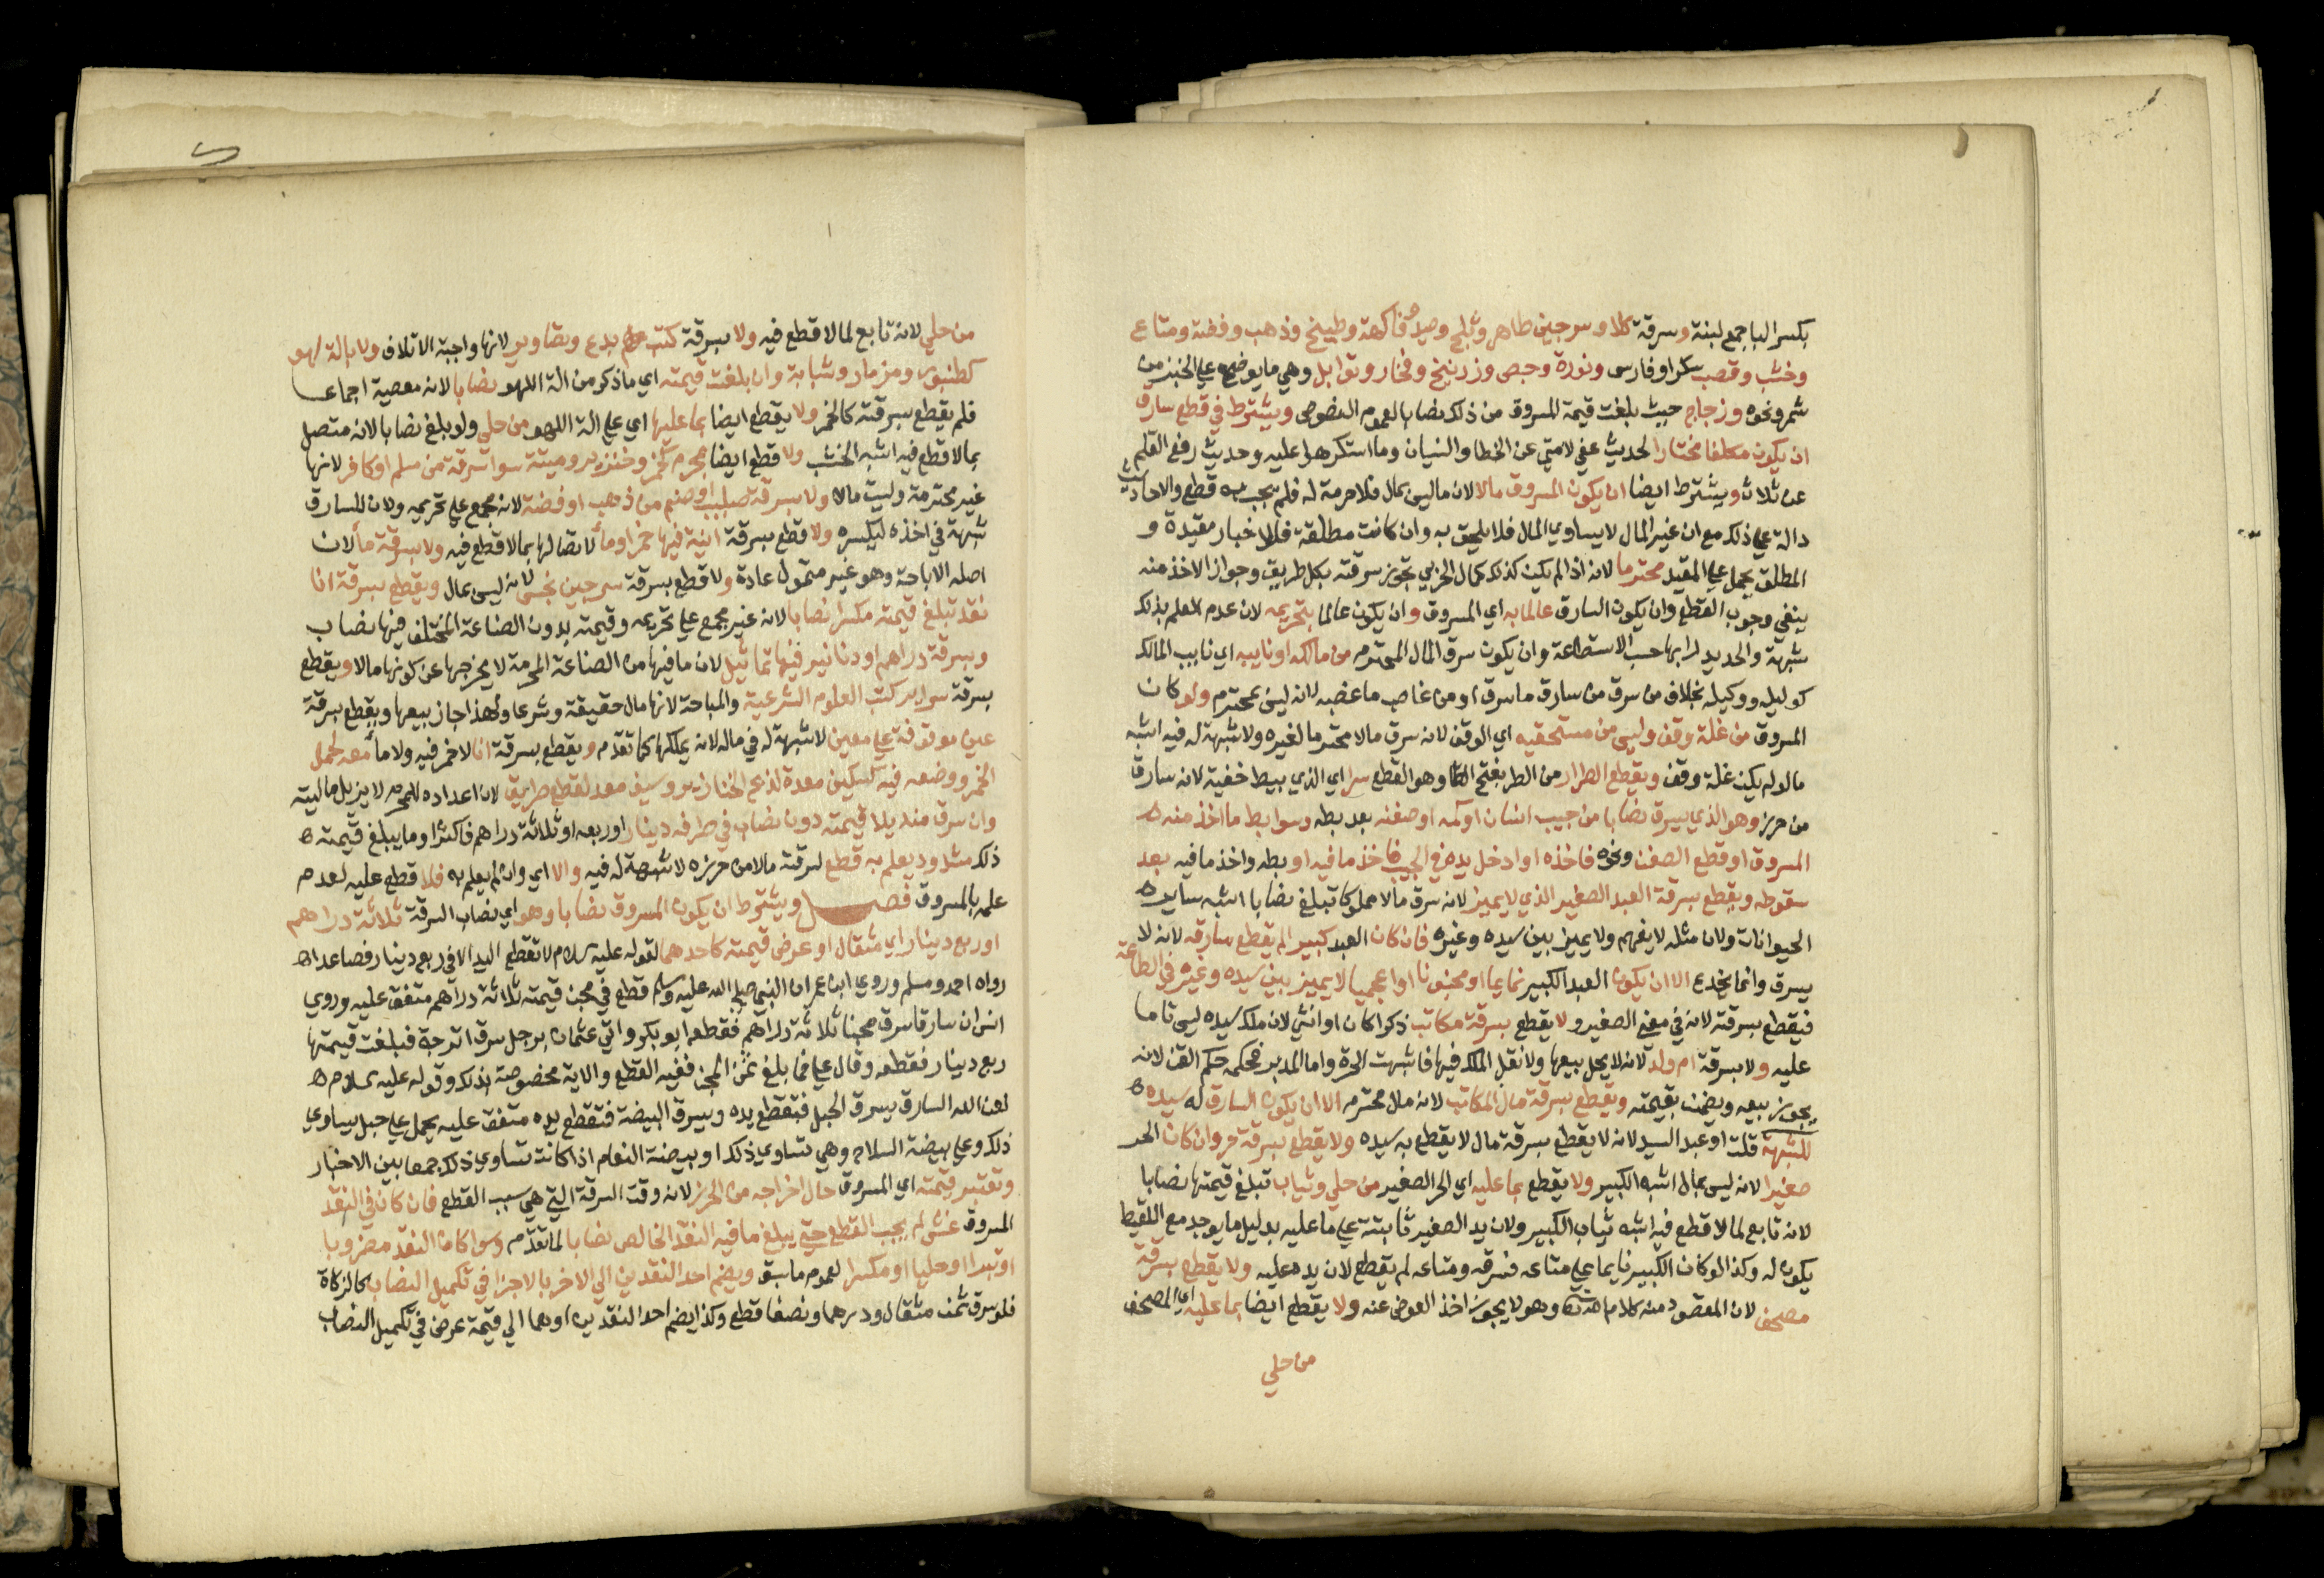 بكسر الباء جمع لبنة وسرقة كلا وسرجين طاهر وثلج وصيد وفاكهة وطبيخ وذهب وفضة ومتاع
وخشب وقصب سكر او فارسي ونورة وجص وزرنيخ وفخار وتوابل وهي ما يوضع علي الخبز من
شمر ونحوه وزجاج حيث بلغت قيمة المسروق من ذلك نصابا لعموم النصوص ويشترط في قطع سارق
ان يكون مكلفا مختارا لحديث عفي لامتي عن الخطا والنسيان وما استكرهوا عليه وحديث رفع القلم
عن ثلاث ويشترط ايضا ان يكون المسروق مالا لان ما ليس بمال فلا حرمة له فلم يجب به قطع والاحاديث
دالة علي ذلك مع ان غير المال لا يساوي المال فلا يلحق به وان كانت مطلقة فالاخبار مقيدة و
المطلق يحمل علي المقيد محترما لانه اذا لم يكن كذلك كمال الحربي تجوز سرقته بكل طريق وجواز الاخذ منه
ينفي وجوب القطع وان يكون السارق عالما به اي المسروق وان يكون عالما بتحريمه لان عدم العلم بذلك
شبهة والحديد لرابها حسب الاستطاعة وان يكون سرق المال المحترم من مالكه او نايبه اي نايب المالك
كوليل ووكيله بخلاف من سرق من سارق ما سرق او من غاصب ما غصبه لانه ليس بمحترم ولو كان
المسروق من غلة وقف وليس من مستحقيه اي الوقف لانه سرق مالا محترما لغيره ولا شبهة له فيه اشبه
مالو لم يكن غلة وقف ويقطع الطرار من الطر بفتح الطا وهو القطع سرا اي الذي يبط خفية لانه سارق
من حرز وهو الذي يسرق نصابا من جيب انسان او كمه او صفنه بعد بطه وسوا بط ما اخذ منه
المسروق او قطع الصفن ونحوه فاخذه او ادخل يده في الجيب فاخذ ما فيه او بطه واخذ ما فيه بعد
سقوطه ويقطع بسرقة العبد الصغير الذي لا يميز لانه سرق مالا مملوكا تبلغ نصابا اشبه ساير
الحيوانات ولان مثله لا يفهم ولا يميز بين سيده وغيره فان كان العبد كبيرا لم يقطع سارقه لانه لا
يسرق وانما يخدع الا ان يكون العبد الكبير نايما او مجنونا او اعجميا لا يميز بين سيده وغيره في الطاعة
فيقطع بسرقته لانه في معني الصغير ولا يقطع بسرقة مكاتب ذكرا كان او انثي لان ملك سيده ليس تاما
عليه ولا بسرقة ام ولد لانه لا يحل بيعها ولا نقل الملك فيها فاشبهت الحرة واما المدبر فحكمه حكم القن لانه
يجوز بيعه ويضمن بقيمته ويقطع بسرقة مال المكاتب لانه مال محترم الا ان يكون السارق له سيده
للشبهة قلت او عبد السيد لانه لا يقطع بسرقة مال لا يقطع به سيده ولا يقطع بسرقة حر وان كان الحر
صغيرا لانه ليس بمال اشبه الكبير ولا يقطع بما عليه اي الحر الصغير من حلي وثياب تبلغ قيمتها نصابا
لانه تابع لما لا قطع فيه اشبه ثياب الكبير ولان يد الصغير ثابتة علي ما عليه بدليل ما يوجد مع اللقيط
يكون له وكذا لو كان الكبير نايما علي متاعه فسرقه ومتاعه لم يقطع لان يده عليه ولا يقطع بسرقة
مصحف لان المقصود منه كلام الله تعالى وهو لا يجوز اخذ العوض عنه ولا يقطع ايضا بما عليه اي المصحف
من حلي
من حلي لانه تابع لما لا قطع فيه ولا بسرقة كتب بدع وتصاوير لانها واجبة الاتلاف ولا بالة لهو
كطنبور ومزمار وشبابة وان بلغت قيمته اي ما ذكر من الة اللهو نصابا لانه معصية اجماعا
فلم يقطع بسرقته كالخمر ولا يقطع ايضا بما عليها اي علي الة اللهو من حلي ولو بلغ نصابا لانه متصل
بما لا قطع فيه اشبه الخشب ولا قطع ايضا بمحرم كخمر وخنزير وميتة سوا سرقه من مسلم او كافر لانها
غير محترمة وليست مالا ولا بسرقة صليب او صنم من ذهب او فضة لانه مجمع علي تحريمه ولان للسارق
شبهة في اخذه ليكسره ولا قطع بسرقة انية فيها خمر او ماء لاتصالها بما لا قطع فيه ولا بسرقة ماء لان
اصله الاباحة وهو غير متمول عادة ولا قطع بسرقة سرجين نجس لانه ليس بمال ويقطع بسرقة انا
نقد تبلغ قيمته مكسرا نصابا لانه غير مجمع علي تحريمه وقيمته بدون الصناعة المختلف فيها نصاب
وبسرقة دراهم او دنانير فيها تماثيل لان ما فيها من الصناعة المحرمة لا يخرجها عن كونها مالا ويقطع
بسرقة ساير كتب العلوم الشرعية والمباحة لانها مال حقيقة وشرعا ولهذا جاز بيعها ويقطع بسرقة
عين موقوفة علي معين لا شبهة له في ماله لانه يملكها كما تقدم ويقطع بسرقة انا لا خمر فيه ولا ماء معد لحمل
الخمر ووضعه فيه كسكين معدة لذبح الخنازير وسيف معد لقطع طريق لان اعداده للمحرم لا يزيل ماليته
وان سرق منديلا قيمته دون نصاب في طرفه دينار او ربعه او ثلاثة دراهم فاكثر او ما يبلغ قيمته
ذلك مشدود يعلم به قطع لسرقة مالا من حرزه لا شبهة له فيه والا اي وان لم يعلم به فلا قطع عليه لعدم
علمه بالمسروق فصل ويشترط ان يكون المسروق نصابا وهو اي نصاب السرقة ثلاثة دراهم
او ربع دينار اي مثقال او عرض قيمته كاحدهما لقوله عليه السلام لا تقطع اليد الا في ربع دينار فصاعدا
رواه احمد ومسلم وروي ابن عمر ان النبي صلي الله عليه وسلم قطع في مجن قيمته ثلاثة دراهم متفق عليه وروي
انس ان سارقا سرق مجنا ثلاثة دراهم فقطعه ابو بكر واتي عثمان برجل سرق اترجة فبلغت قيمتها
ربع دينار فقطعه وقال علي فما بلغ ثمن المجن ففيه القطع والاية مخصوصة بذلك وقوله عليه السلام
لعن الله السارق يسرق الحبل فتقطع يده ويسرق البيضة فتقطع يده متفق عليه يحمل علي حبل يساوي
ذلك وعلي بيضة السلاح وهي تساوي ذلك او بيضة النعام اذا كانت تساوي ذلك جمعا بين الاخبار
وتعتبر قيمته اي المسروق حال اخراجه من الحرز لانه وقت السرقة التي هي سبب القطع فان كان في النقد
المسروق غش لم يجب القطع حتي يبلغ ما فيه النقد الخالص نصابا لما تقدم وسوا كان النقد مضروبا
او تبرا او حليا او مكسرا لعموم ما سبق ويضم احد النقدين الي الاخر بالاجزا في تكميل النصاب كالزكاة
فلو سرق ثمن مثقال ودرهما ونصفا قطع وكذا يضم احد النقدين او هما الي قيمة عرض في تكميل النصاب